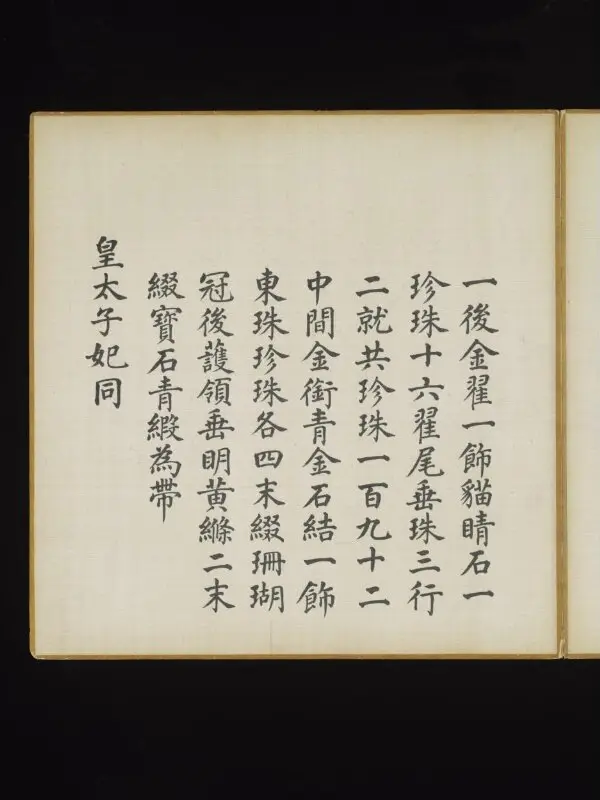 一後金翟一飾貓睛石一
珍珠十六翟尾垂珠三行
二就共珍珠一百九十二
中間金銜青金石結一飾
東珠珍珠各四末綴珊瑚
冠後護領垂明黃縧二末
綴寶石青緞為帶
皇太子妃同